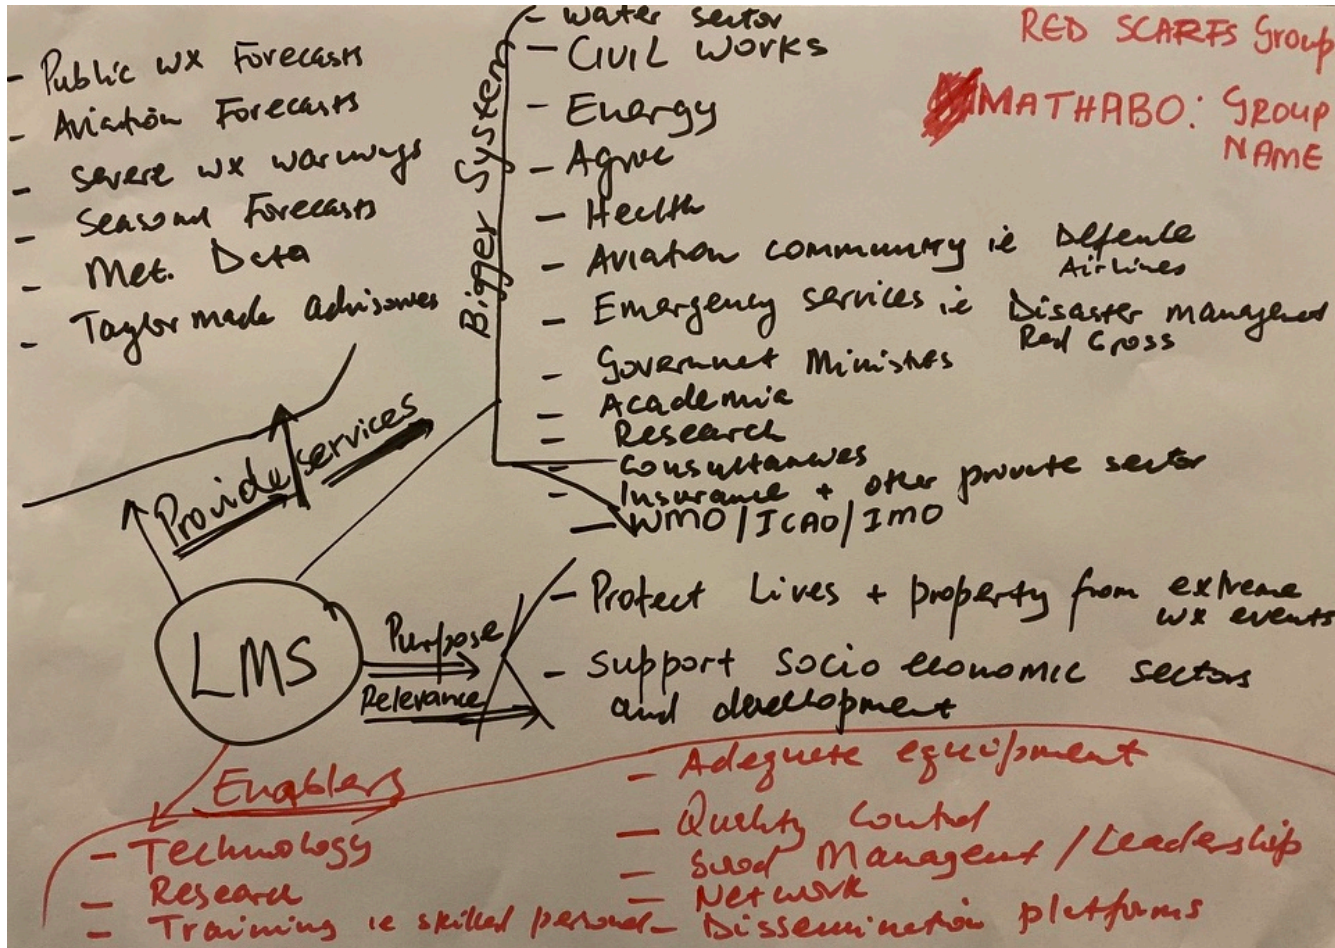 - Public wx Forecasts
- Aviation Forecasts
- Severe wx warnings
- Seasonal Forecasts
- Met. Data
- Taylor made advisories
Provide services
Bigger System
- Water sector
- CIVIL WORKS
- Energy
- Agric
- Health
- Aviation community ie Defence
Airlines
- Emergency services ie Disaster management
Red Cross
- Government Ministries
- Academia
- Research
- Consultancies
- Insurance + other private sector
- WMO / ICAO / IMO
RED SCARFS Group
MATHABO: GROUP
NAME
LMS
Purpose
Relevance
- Protect Lives + property from extreme
wx events
- Support Socio economic sectors
and development
Enablers
- Technology
- Research
- Training ie skilled personel
- Adequete equipment
- Quality Control
- Good Managent / Leadership
- Network
- Dissemination platforms